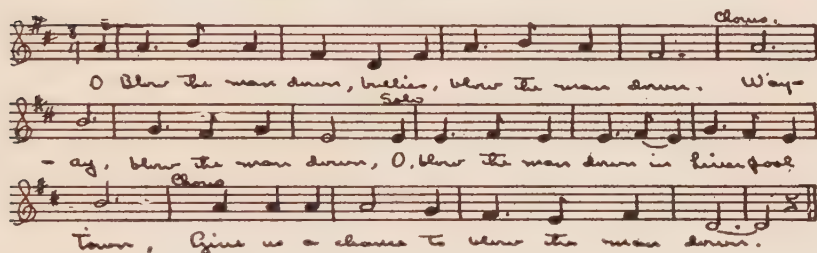 Chorus.
O Blow the man down, bullies, blow the man down. Way-
Solo
- ay, blow the man down, O, blow the man down in Liverpool
Chorus
Town, Give us a chance to blow the man down.